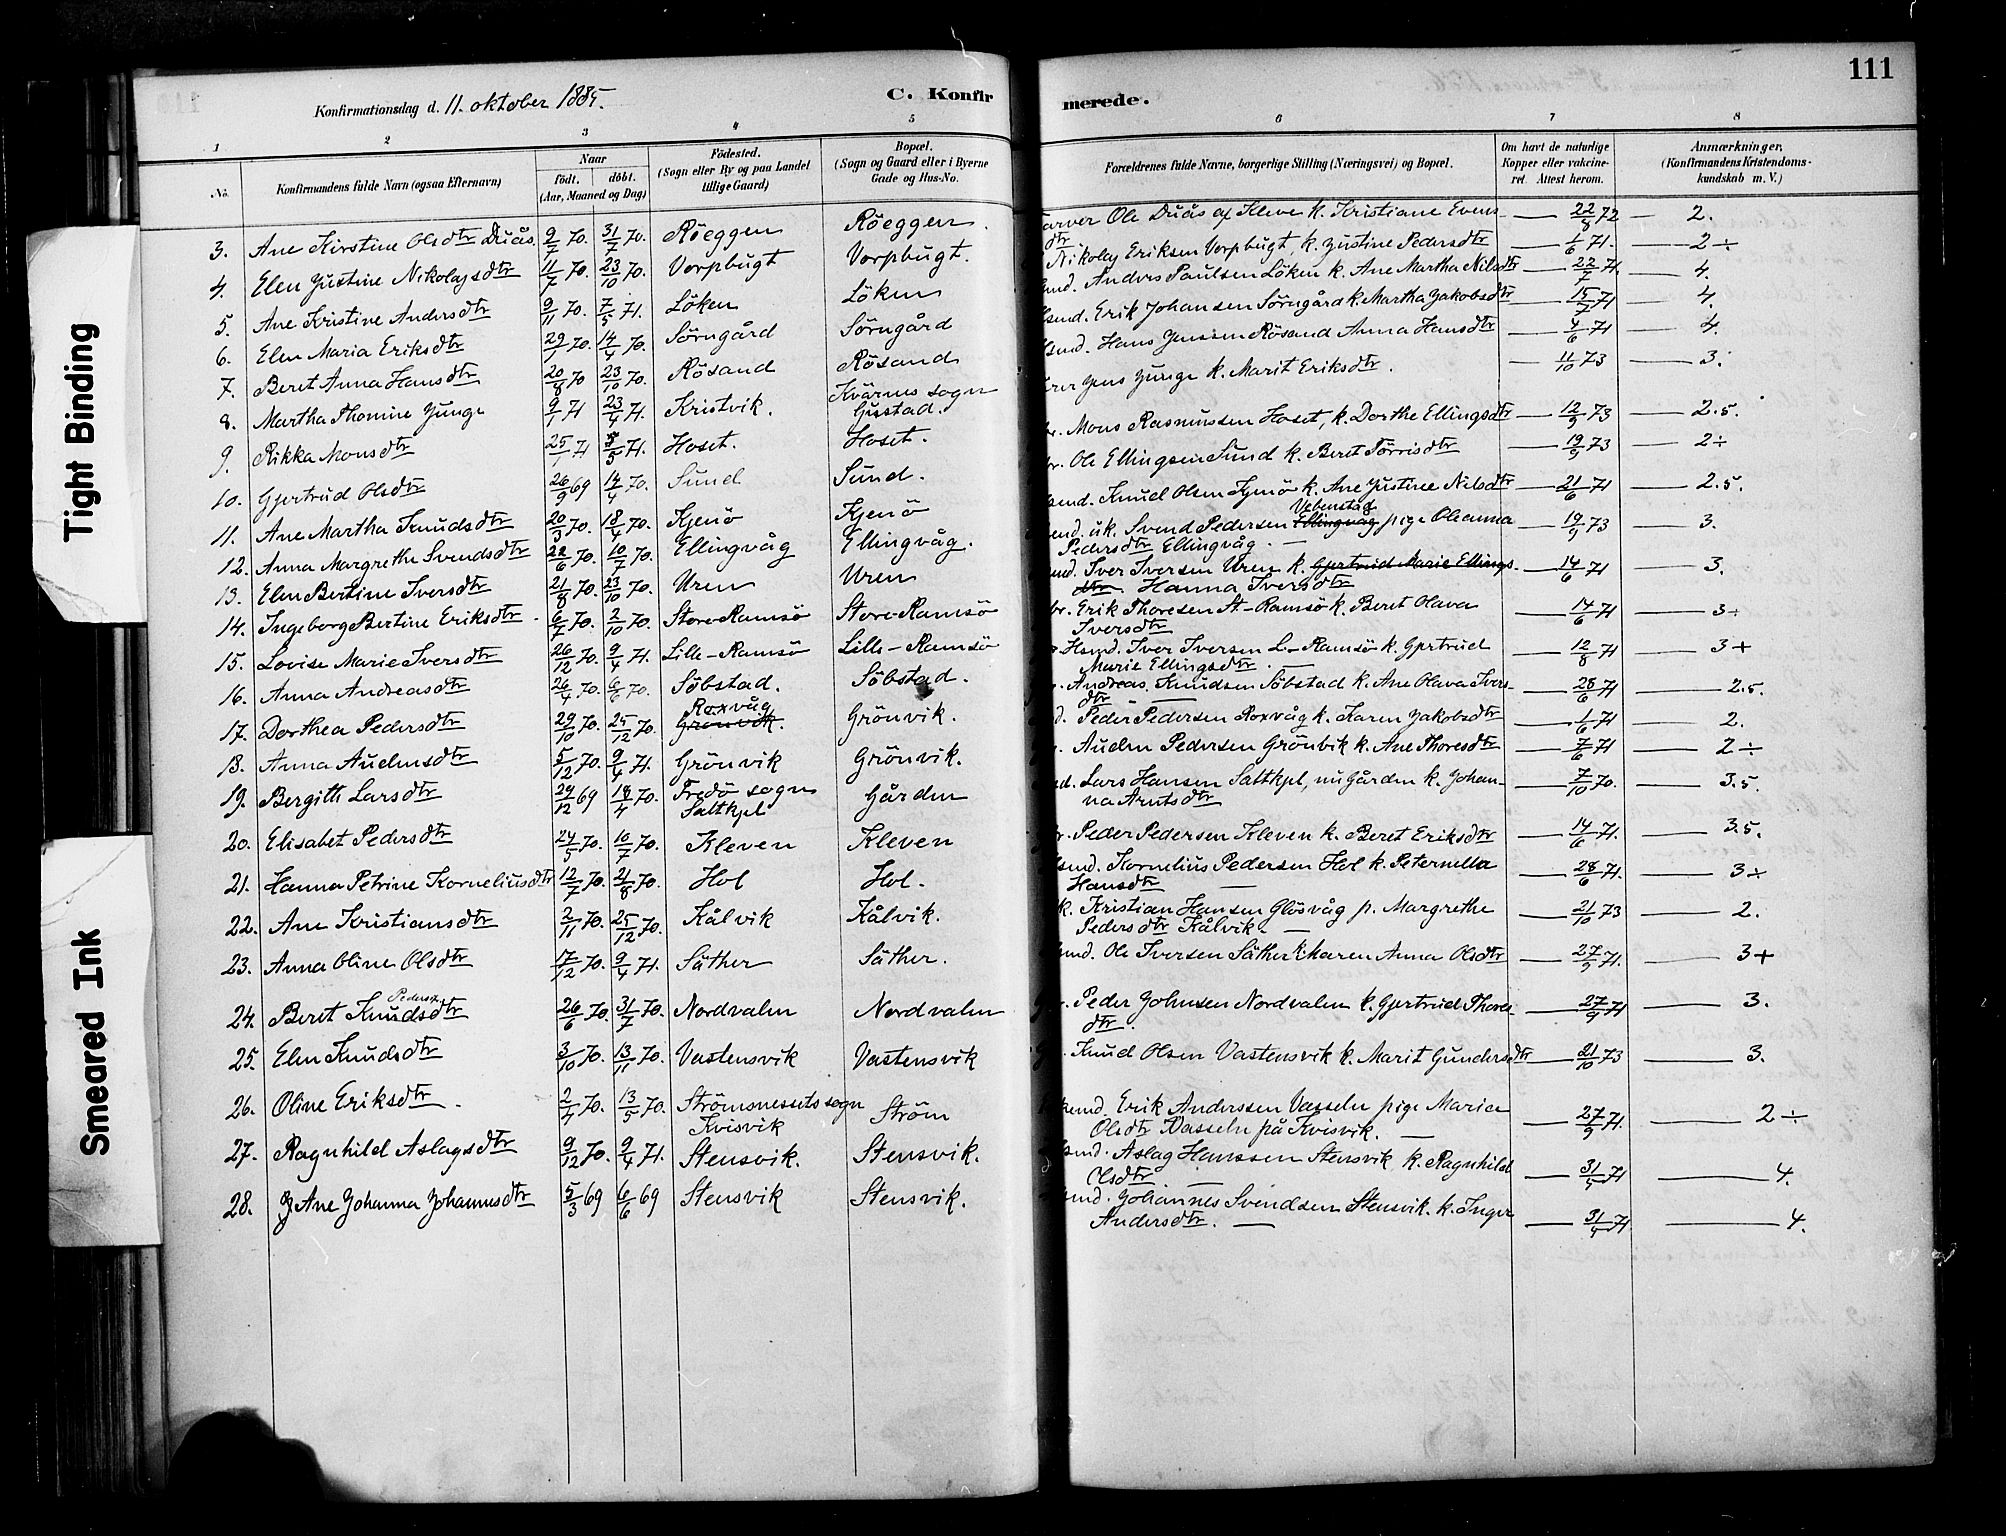 111
Konfirmationsdag d. 11. oktober 1885.
C. Konfirmerede.
1 2 3 4 5 6 7 8
No. Konfirmandens fulde Navn (ogsaa Efternavn)
Naar født. døbt. (Aar, Maaned og Dag)
Fødested. (Sogn eller By og paa Landet tillige Gaard)
Bopæl. (Sogn og Gaard eller i Byerne Gade og Hus-No.
Forældrenes fulde Navne, borgerlige Stilling (Næringsvei) og Bopæl.
Om havt de naturlige Kopper eller vakcineret. Attest herom.
Anmærkninger, (Konfirmandens Kristendomskundskab m. V.)
3. Ane Kirstine Olsdtr Duås 9/7 70. 31/7 70. Röeggen Röeggen. Garver Ole Duås af Kleve k. Kristiane Evensdtr — 22/8 72 — 2.
4. Elen Justine Nikolaysdtr 11/7 70. 23/10 70. Vorpbugt Vorpbugt. Nikolay Eriksen Vorpbugt, k. Justine Pedersdtr — 1/6 71. — 2÷
5. Ane Kristine Andersdtr 9/11 70. 7/5 71. Löken Löken Anders Paulsen Löken k. Ane Martha Nilsdtr — 22/7 71. — 4.
6. Elen Maria Eriksdtr 29/1 70. 14/4 70. Sörngård Sörngård Erik Johansen Sörngård k. Martha Jakobsdtr — 15/7 71 — 4.
7. Beret Anna Hansdtr 20/8 70 23/10 70. Rösand Rösand Hans Jenssen Rösand Anna Hansdtr — 4/6 71 — 4.
8. Martha Thomine Junge 9/1 71 23/4 71. Kristvik. Kvärnes sogn Gustad. Jens Junge k. Marit Eriksdtr. — 11/10 73 — 3.
9. Rikka Monsdtr 25/1 71 5/5 71. Hoset. Hoset. Mons Rasmussen Hoset, k. Dorthe Ellingsdtr — 12/9 73 — 2.5.
10. Gjertrud Olsdtr 26/9 69 14/4 70. Sund Sund. Ole Ellingsen Sund k. Beret Törrisdtr — 19/9 73 — 2÷
11. Ane Martha Knudsdtr 20/3 70. 18/4 70. Kjenö Kjenö Knud Olsen Kjenö k. Ane Justine Nilsdtr — 21/6 71 — 2.5.
12. Anna Margrethe Svendsdtr 22/6 70. 10/7 70. Ellingvåg Ellingvåg. uk. Svend Pedersen Ellingvåg Vebenstad pige Oleanna Pedersdtr Ellingvåg. — 19/9 73 — 3.
13. Elen Bertine Iversdtr 21/8 70. 23/10 70. Uren Uren Iver Iversen Uren k. Gjertrud Marie Ellingsdtr Hanna Iversdtr — 14/6 71 — 3.
14. Ingeborg Bertine Eriksdtr. 6/7 70. 2/10 70. Store-Ramsö Store-Ramsö Erik Thoresen St.-Ramsö k. Beret Olava Iversdtr — 14/6 71 — 3÷
15. Lovise Marie Iversdtr 26/12 70. 9/4 71. Lille-Ramsö Lille-Ramsö Hsmd. Iver Iversen L-Ramsö k. Gjertrud Marie Ellingsdtr. — 12/8 71 — 3+
16. Anna Andreasdtr 26/4 70. 6/6 70. Söbstad. Söbstad. Andreas Knudsen Söbstad k. Ane Olava Iversdtr — 28/6 71 — 2.5.
17. Dorthea Pedersdtr 29/10 70. 25/12 70. Grönvik. Roxvåg Grönvik. Peder Pedersen Roxvåg k. Karen Jakobsdtr — 1/6 71 — 2.
18. Anna Audensdtr 5/12 70. 9/4 71. Grönvik Grönvik. Auden Pedersen Grönvik k. Ane Thoresdtr — 7/6 71 — 2÷
19. Bergith Larsdtr 24/12 69 18/4 70. Fredö sogn Saltkjel Gården Lars Hansen Saltkjel, nu Gården k. Johanna Arntsdtr — 7/10 70. — 3.5.
20. Elisabet Pedersdtr 24/5 70. 10/7 70. Kleven Kleven Peder Pedersen Kleven k. Beret Eriksdtr — 14/6 71. — 3.5.
21. Hanna Petrine Korneliusdtr 12/7 70. 21/8 70. Hol Hol. Kornelius Pedersen Hol k. Peternella Hansdtr — 28/6 71. — 3÷
22. Ane Kristiansdtr 2/11 70. 25/12 70. Kålvik Kålvik. Kristian Hansen Glösvåg p. Margrethe Pedersdtr Kålvik. — 21/10 73 — 2.
23. Anna Oline Olsdtr 17/12 70. 9/4 71. Säther Säther. Ole Iversen Säther k. Maren Anna Olsdtr — 27/9 71. — 3+
24. Beret Knudsdtr Peders 26/6 70. 31/7 70. Nordvalen Nordvalen Peder Johnsen Nordvalen k. Gjertrud Thoresdtr. — 27/9 71 — 3.
25. Elen Knudsdtr 3/10 70. 13/11 70. Vastensvik Vastensvik Knud Olsen Vastensvik k. Marit Gundersdtr — 21/10 73 — 3.
26. Oline Eriksdtr. 2/4 70. 13/5 70. Strömsnessets sogn Kvisvik Ström Erik Anderssen Vasseln pige Maria Olsdtr Vasseln på Kvisvik. — 27/9 71. — 2÷
27. Ragnhild Aslagsdtr 9/12 70. 9/4 71. Stensvik. Stensvik. Aslag Hanssen Stensvik k. Ragnhild Olsdtr — 31/5 71 — 4.
28. Ane Johanna Johannesdtr 5/3 69 6/6 69 Stensvik Stensvik. Johannes Svendsen Stensvik. k. Inger Andersdtr. — 31/5 71. — 4.
Tight Binding
Smeared Ink